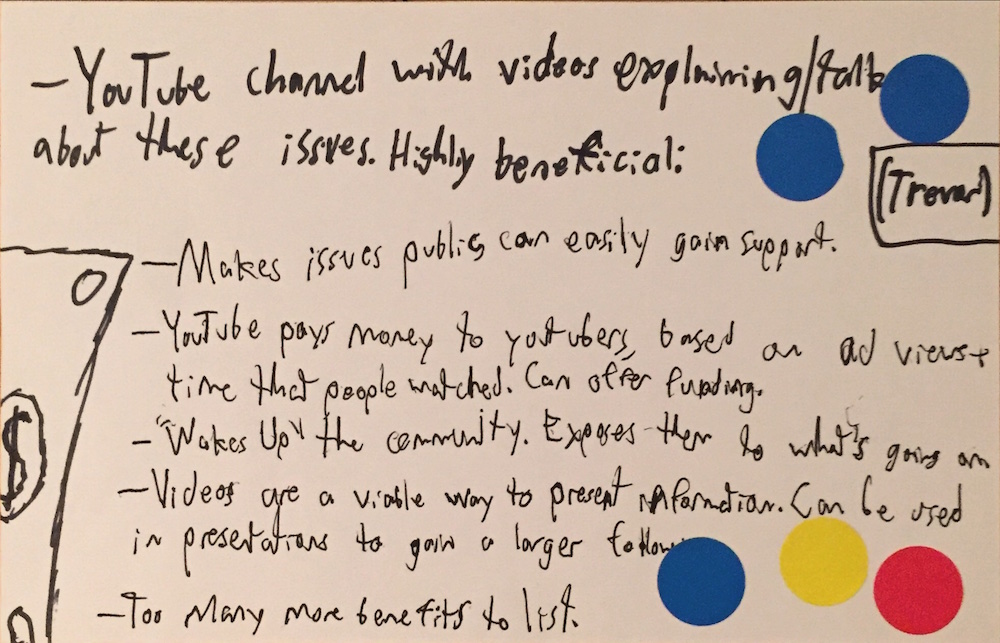 — YouTube channel with videos explaining/talk
about these issues. Highly beneficial:
(Trevar)
— Makes issues public, can easily gain support.
— YouTube pays money to youtubers, based on ad views +
time that people watched. Can offer funding.
— "Wakes Up" the community. Exposes them to what's going on
— Videos are a viable way to present information. Can be used
in presentations to gain a larger
— Too many more benefits to list.
$